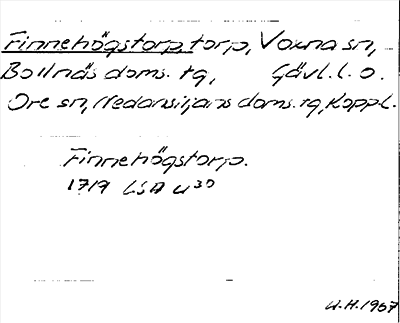 Finnehögstorp, torp, Voxna sn,
Bollnäs doms. tg, Gävl. l. o.
Ore sn, Nedansiljans doms. tg, Koppl.
Finnehögstorp.
1719 LSA U30
U.H. 1967